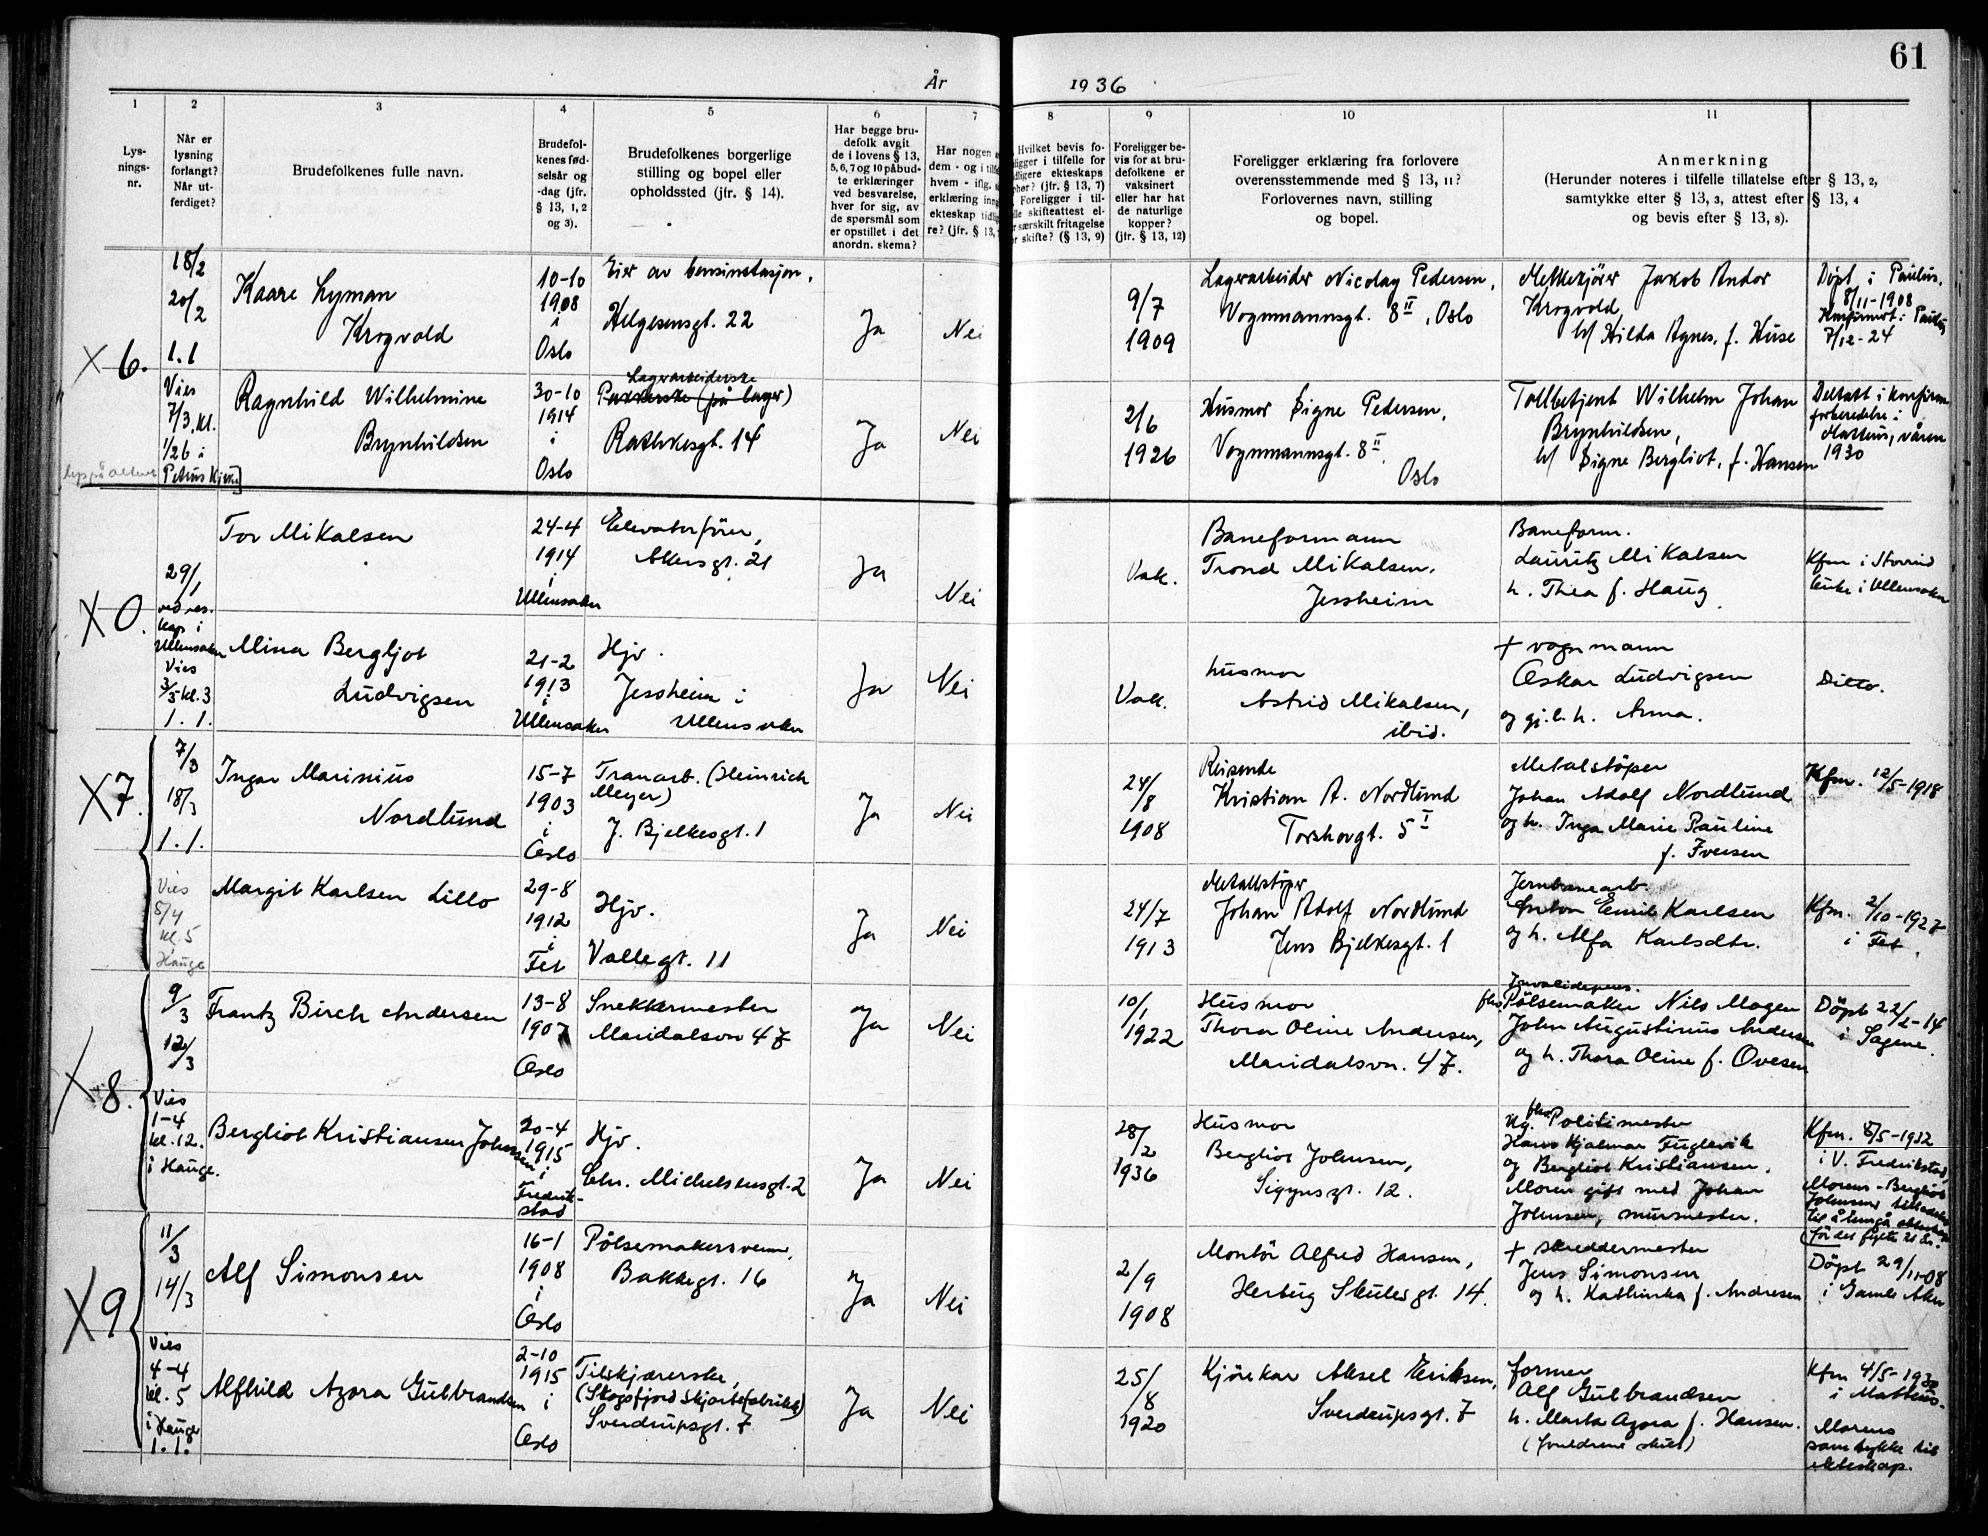 61
År 1936
1
2
3
4
5
6
7
8
9
10
11
Lys-
nings-
nr.
Når er
lysning
forlangt?
Når ut-
ferdiget?
Brudefolkenes fulle navn.
Brudefol-
kenes fød-
selsår og
-dag (jfr.
§ 13, 1, 2
og 3).
Brudefolkenes borgerlige
stilling og bopel eller
opholdssted (jfr. § 14).
Har begge bru-
defolk avgit
de i lovens § 13,
5, 6, 7 og 10 påbud-
te erklæringer
ved besvarelse,
hver for sig, av
de spørsmål som
er opstillet i det
anordn. skema?
Har nogen
dem - og i
hvem - iflg.
erklæring
ekteskap
re? (jfr. § 13,
Hvilket bevis fo-
ligger i tilfelle for
ekteskaps
(jfr. § 13, 7)
Foreligger i til-
skifteattest el-
særskilt fritagelse
skifte? (§ 13, 9)
Foreligger be-
vis for at bru-
defolkene er
vaksinert
eller har hat
de naturlige
kopper?
(jfr. § 13, 12)
Foreligger erklæring fra forlovere
overensstemmende med § 13, 11?
Forlovernes navn, stilling
og bopel.
Anmerkning
(Herunder noteres i tilfelle tillatelse efter § 13, 2,
samtykke etter § 13, 3, attest efter § 13, 4
og bevis efter § 13, 8).
X 6.
18/2
20/2
1.1
Kaare Lyman
Krogvold
10-10
1908
i
Oslo
Eier av bensinstasjon.
Helgesensgt. 22
Ja
Nei
9/7
1909
Lagerarbeider Nicolay Pedersen,
Vognmannsgt. 8 II, Oslo
Melkekjører Jakob Andor
Krogvold,
h/ Hilda Agnes, f. Huse
Döpt i Paulus,
8/11-1908
Konfirmert i Paulus
7/12-24
Vies
7/3, kl.
1/2 6 i
Ragnhild Wilhelmine
Brynhildsen
30-10
1914
i
Oslo
Lagerarbeiderske
Pakkerske (på lager)
Rathkesgt. 14
Ja
Nei
2/6
1926
Husmor Signe Pedersen,
Vognmannsgt. 8 II,
Oslo
Tollbetjent Wilhelm Johan
Brynhildsen,
h/ Signe Bergliot, f. Hansen
Deltatt i konfirm.
forberedelse i
Matteus, våren
1930
X 0.
29/1
i
Ullensaker
Vies
3/5 kl. 3
1.1.
Tor Mikalsen
24-4
1914
i
Ullensaker
Elevatorförer,
Akersgt. 21
Ja
Nei
Vak.
Baneformann
Trond Mikalsen,
Jessheim
Baneform.
Lauritz Mikalsen
h. Thea f. Haug
Mina Bergljot
Ludvigsen
21-2
1913
i
Ullensaker
Hjv.
Jessheim i
Ullensaker
Ja
Nei
Vak.
husmor
Astrid Mikalsen,
ibid.
+ vognmann
Oskar Ludvigsen
og gj. l. h. Anna.
Ditto.
X 7.
7/3
18/3
1.1.
Ingar Marinius
Nordlund
15-7
1903
i
Oslo
Tranarb. (Heinrich
Meyer)
J. Bjelkesgt. 1
Ja
Nei
24/8
1908
Reisende
Kristian A. Nordlund
Torshovgt. 5 I
Metalstöper
Johan Adolf Nordlund
og h. Inga Marie Pauline
f. Iversen
Kfm. 12/5-1918
Vies
8/4
kl. 5
i
Hauge
Margit Karlsen Lillo
29-8
1912
i
Fet
Hjv.
Vallegt. 11
Ja
Nei
24/7
1913
Metallstöper
Johan Adolf Nordlund
Jens Bjelkesgt. 1
Jernbanearb.
Anton Emil Karlsen
og h. Alfa Karlsdtr.
Kfm. 2/10-1927
i Fet.
X 8.
9/3
12/3
Frantz Birch Andersen
13-8
1907
Oslo
Snekkermester
Maridalsvn 47
Ja
Nei
10/1
1922
Husmor
Thora Oline Andersen,
Maridalsvn. 47.
Invalidepens.
fhv. Pölsemaker Nils Magen
John Augustinus Andersen
og h. Thora Oline f. Ovesen
Döpt 22/2-14
i Sagene.
Vies
1-4
kl. 12.
i Hauge.
Bergliot Kristiansen Johnsen
20-4
1915
i
Fredrik-
stad
Hjv.
Chr. Michelsensgt. 2
Ja
Nei
28/2
1936
Husmor
Bergliot Johnsen,
Sigynsgt. 12.
fhv.
Politimester
Hans Hjalmar Fuglevik
og Bergliot Kristiansen.
Moren gift med Johan
Johnsen, murmester.
Kfm. 8/5-1932
i V. Fredrikstad,
Morens - Bergliot
Johnsens tilladelse
til å inngå ekteskap
för det fyllte 21 år.
X 9
11/3
14/3
Alf Simonsen
16-1
1908
i
Oslo
Pölsemakersvenn.
Bakkegt. 16
Ja
Nei
2/9
1908
Montör Alfred Hansen,
Hertug Skulesgt. 14.
+ skreddermester
Jens Simonsen
og h. Kathinka f. Andresen
Döpt 29/11-08
i Gamle Aker
Vies
4-4
kl. 5
i Hauge
1.1.
Alfhild Azora Gulbrandsen
2-10
1915
i
Oslo
Tilskjærerske,
(Skogsfjord Skjortefabrikk)
Sverdrupsgt. 7
Ja
Nei
25/8
1920
Kjörekar Aksel Eriksen,
Sverdrupsgt. 7
former
Alf Gulbrandsen
h. Marta Azora f. Hansen.
(foreldrene skilt)
Kfm 4/5-1930
i Matteus.
Morens
samtykke til
ekteskap.